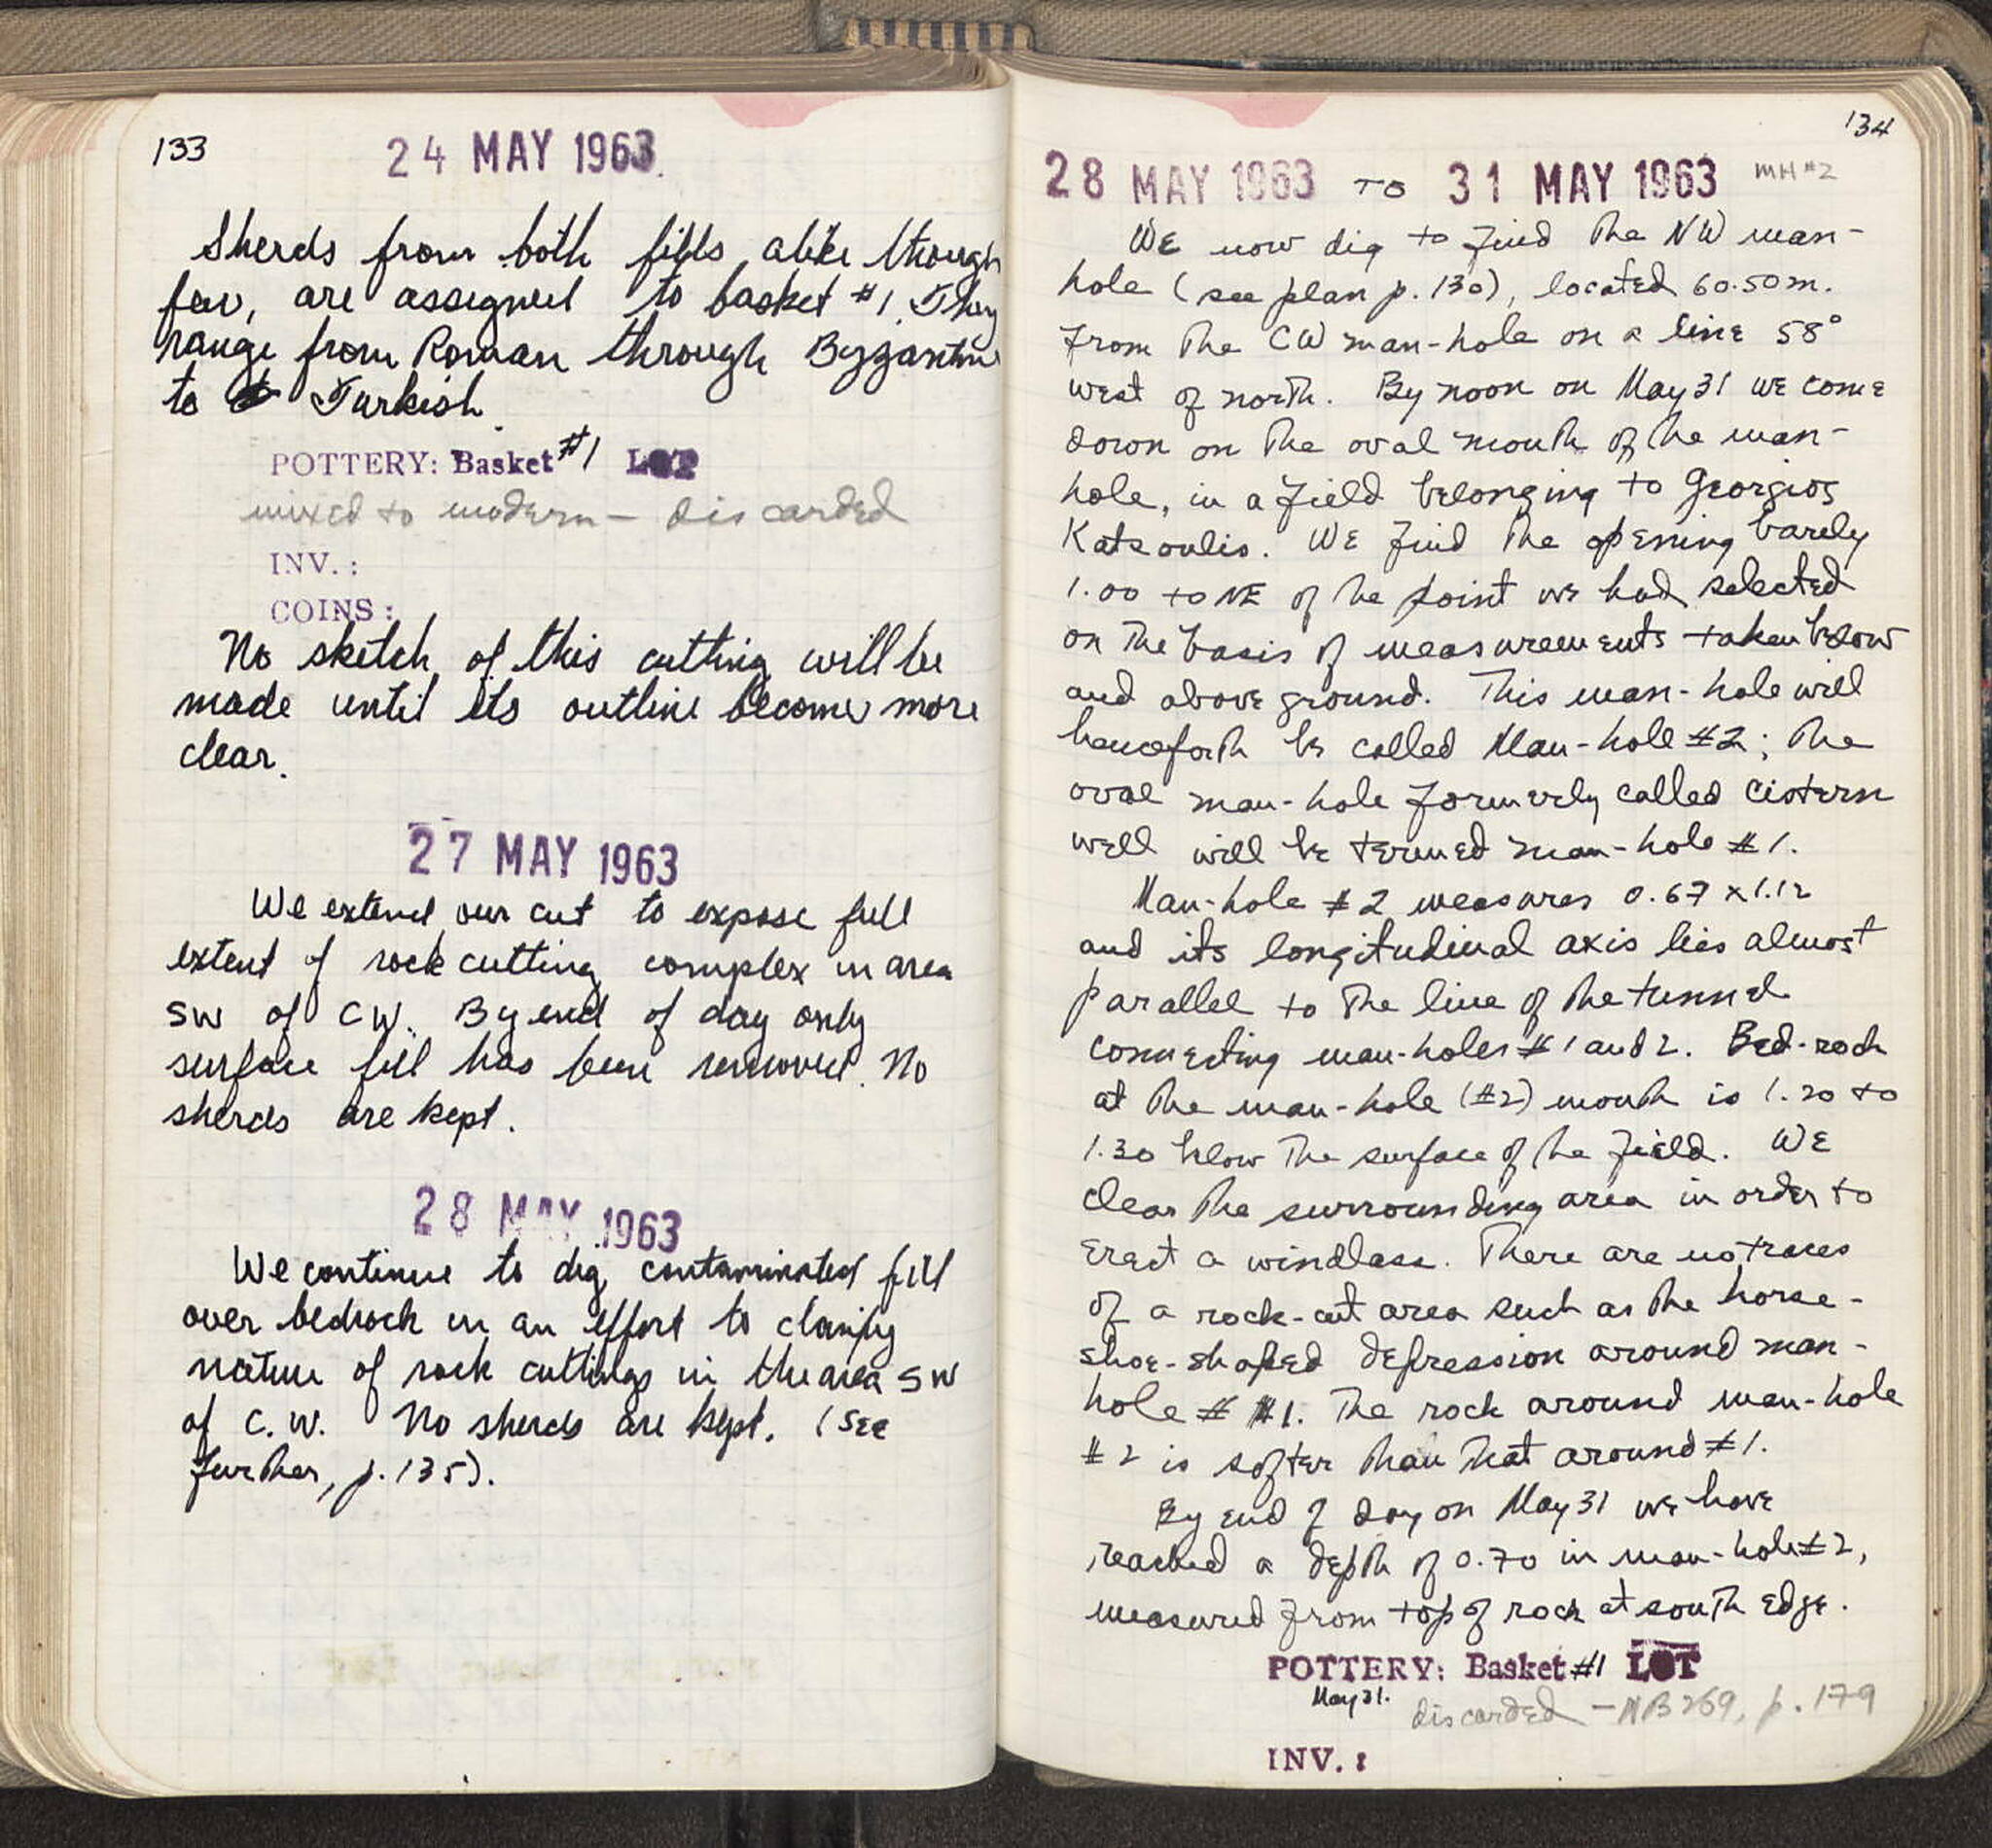 133
24 MAY 1963
Sherds from both fills alike though
few, are assigned to basket #1. They
range from Roman through Byzantine
to Turkish.
POTTERY: Basket #1 LOT
mixed to modern — discarded
INV.:
COINS:
No sketch of this cutting will be
made until its outline becomes more
clear.
27 MAY 1963
We extend our cut to expose full
extent of rock cutting complex in area
SW of CW. By end of day only
surface fill has been removed. No
sherds are kept.
28 MAY 1963
We continue to dig contaminated fill
over bedrock in an effort to clarify
nature of rock cuttings in the area SW
of C.W. No sherds are kept. (See
further, p. 135).
134
28 MAY 1963 TO 31 MAY 1963 MH #2
We now dig to find the NW man-
hole (see plan p. 130), located 60.50m.
from the CW man-hole on a line 58°
west of north. By noon on May 31 we come
down on the oval mouth of the man-
hole, in a field belonging to Georgios
Katsoulis. We find the opening barely
1.00 to NE of the point we had selected
on the basis of measurements taken below
and above ground. This man-hole will
henceforth be called Man-hole #2; the
oval man-hole formerly called cistern
well will be termed man-hole #1.
Man-hole #2 measures 0.67 x 1.12
and its longitudinal axis lies almost
parallel to the line of the tunnel
connecting man-holes #1 and 2. Bed-rock
at the man-hole (#2) mouth is 1.20 to
1.30 below the surface of the field. We
clear the surrounding area in order to
erect a windlass. There are no traces
of a rock-cut area such as the horse-
shoe-shaped depression around man-
hole # #1. The rock around man-hole
#2 is softer than that around #1.
By end of day on May 31 we have
reached a depth of 0.70 in man-hole #2,
measured from top of rock at south edge.
POTTERY: Basket #1 LOT
May 31. discarded — NB 269, p. 179
INV.: